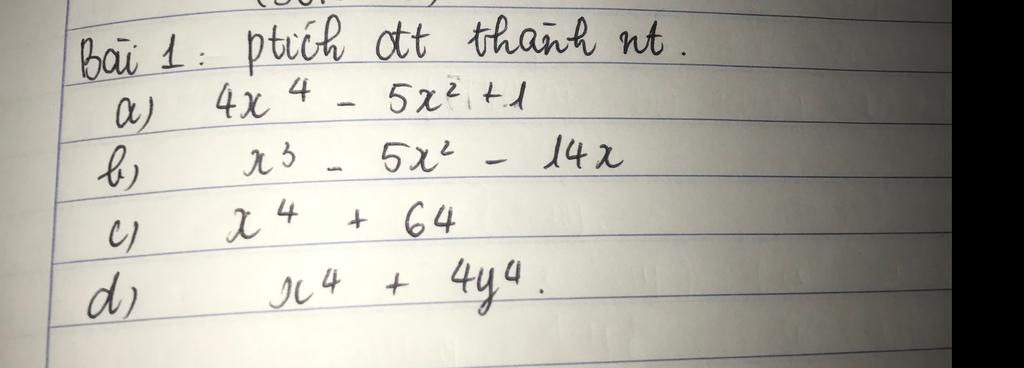 Bài 1: ptích đtt thành nt.
a) 4x⁴ - 5x² + 1
b) x³ - 5x² - 14x
c) x⁴ + 64
d) x⁴ + 4y⁴.